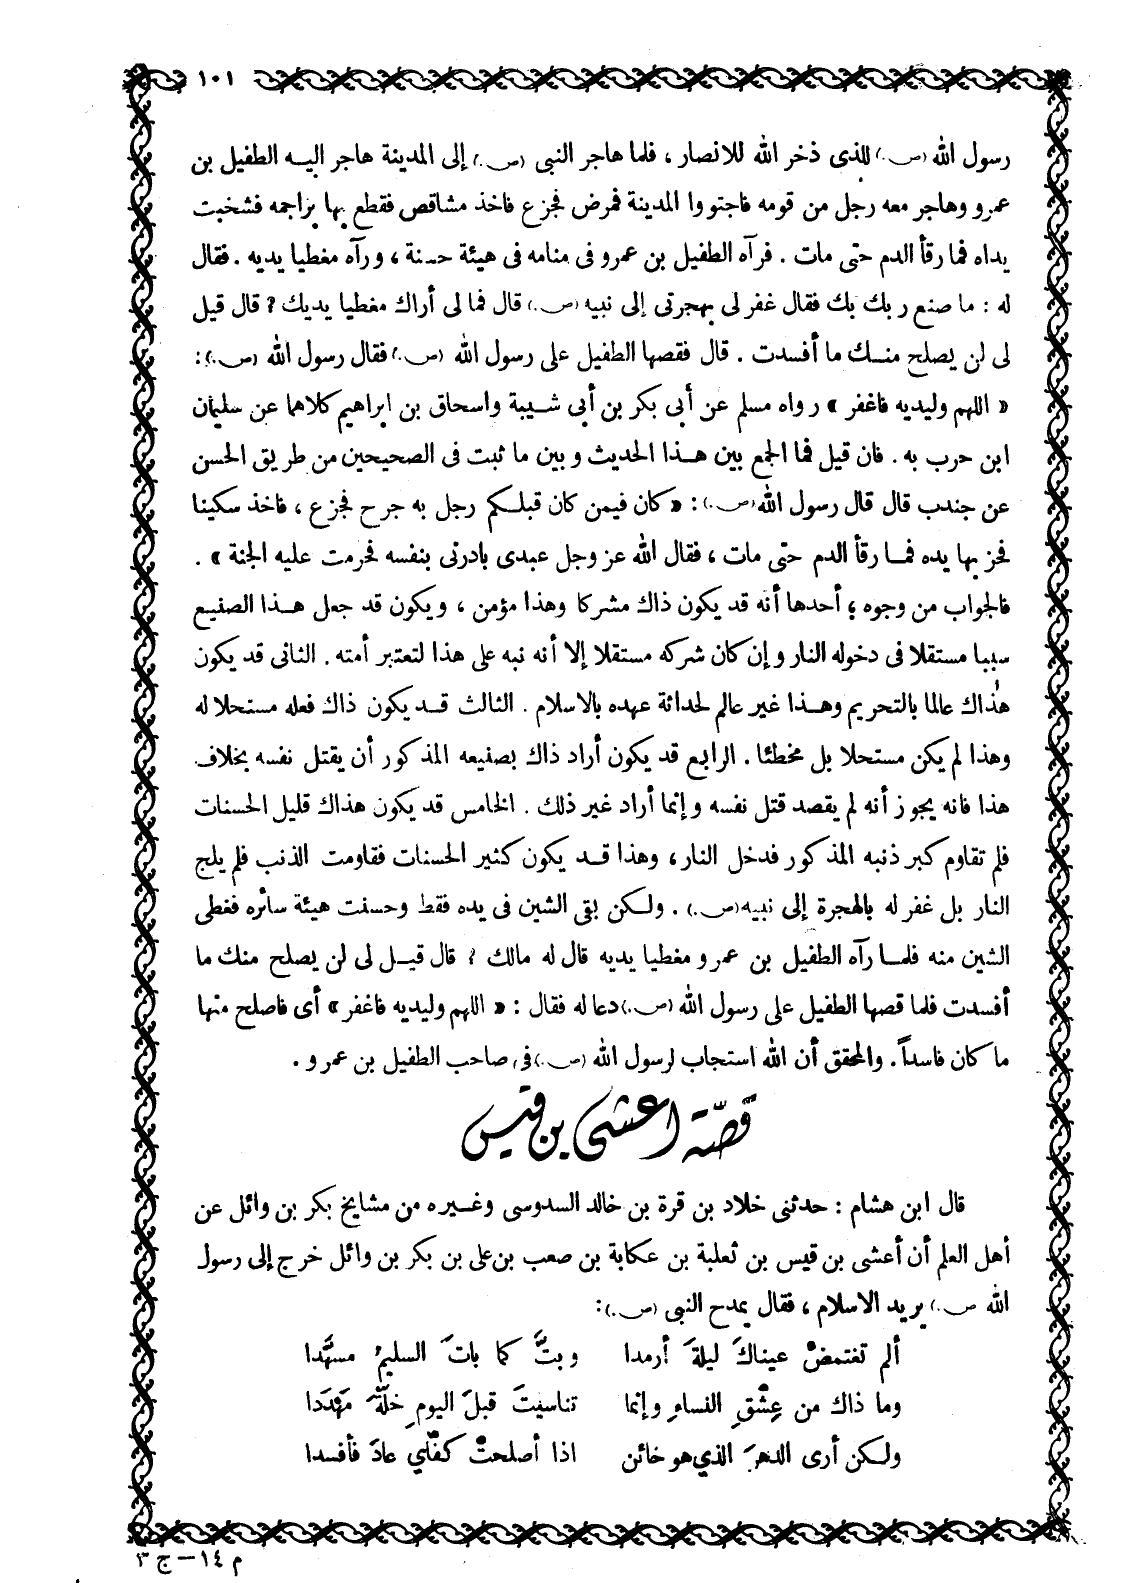 ١٠١
رسول الله (ص.) للذى ذخر الله للانصار ، فلما هاجر النبى (ص.) إلى المدينة هاجر اليه الطفيل بن
عمرو وهاجر معه رجل من قومه فاجتووا المدينة فمرض فجزع فاخذ مشاقص فقطع بها براجمه فشخبت
يداه فما رقأ الدم حتى مات . فرآه الطفيل بن عمرو فى منامه فى هيئة حسنة ، ورآه مغطيا يديه . فقال
له : ما صنع ربك بك فقال غفر لى بهجرتى إلى نبيه (ص.) قال فما لى أراك مغطيا يديك ? قال قيل
لى لن يصلح منك ما أفسدت . قال فقصها الطفيل على رسول الله (ص.) فقال رسول الله (ص.) :
« اللهم وليديه فاغفر » رواه مسلم عن أبى بكر بن أبي شيبة واسحاق بن ابراهيم كلاهما عن سليمان
ابن حرب به . فان قيل فما الجمع بين هذا الحديث وبين ما ثبت فى الصحيحين من طريق الحسن
عن جندب قال قال رسول الله (ص.) : « كان فيمن كان قبلكم رجل به جرح فجزع ، فاخذ سكينا
فحز بها يده فما رقأ الدم حتى مات ، فقال الله عز وجل عبدى بادرنى بنفسه فحرمت عليه الجنة » .
فالجواب من وجوه ؛ أحدها أنه قد يكون ذاك مشركا وهذا مؤمن ، ويكون قد جعل هذا الصنيع
سببا مستقلا فى دخوله النار وإن كان شركه مستقلا إلا أنه نبه على هذا لتعتبر أمته . الثانى قد يكون
هٰذاك عالما بالتحريم وهذا غير عالم لحداثة عهده بالاسلام . الثالث قد يكون ذاك فعله مستحلا له
وهذا لم يكن مستحلا بل مخطئا . الرابع قد يكون أراد ذاك بصنيعه المذكور أن يقتل نفسه بخلاف
هذا فانه يجوز أنه لم يقصد قتل نفسه وإنما أراد غير ذلك . الخامس قد يكون هذاك قليل الحسنات
فلم تقاوم كبر ذنبه المذكور فدخل النار ، وهذا قد يكون كثير الحسنات فقاومت الذنب فلم يلج
النار بل غفر له بالهجرة إلى نبيه (ص.) . ولكن بقى الشين فى يده فقط وحسنت هيئة سائره فغطى
الشين منه فلما رآه الطفيل بن عمرو مغطيا يديه قال له مالك ? قال قيل لى لن يصلح منك ما
أفسدت فلما قصها الطفيل على رسول الله (ص.) دعا له فقال : « اللهم وليديه فاغفر » أى فاصلح منها
ما كان فاسداً . والمحقق أن الله استجاب لرسول الله (ص.) فى صاحب الطفيل بن عمرو .
قصّة اعشى بن قيس
قال ابن هشام : حدثنى خلاد بن قرة بن خالد السدوسى وغيره من مشايخ بكر بن وائل عن
أهل العلم أن أعشى بن قيس بن ثعلبة بن عكابة بن صعب بن على بن بكر بن وائل خرج إلى رسول
الله ص.) يريد الاسلام ، فقال يمدح النبى (ص.) :
ألم تغتمضْ عيناكَ ليلةَ أرمدا وبتَّ كما باتَ السليمُ مسهَّدا
وما ذاك من عِشْقِ النساءِ وإنما تناسيتَ قبلَ اليومِ خلّةَ مَهْدَدا
ولكن أرى الدهرَ الذي هو خائن اذا أصلحتْ كفّاي عادَ فأفسدا
م ١٤ – ج ٣